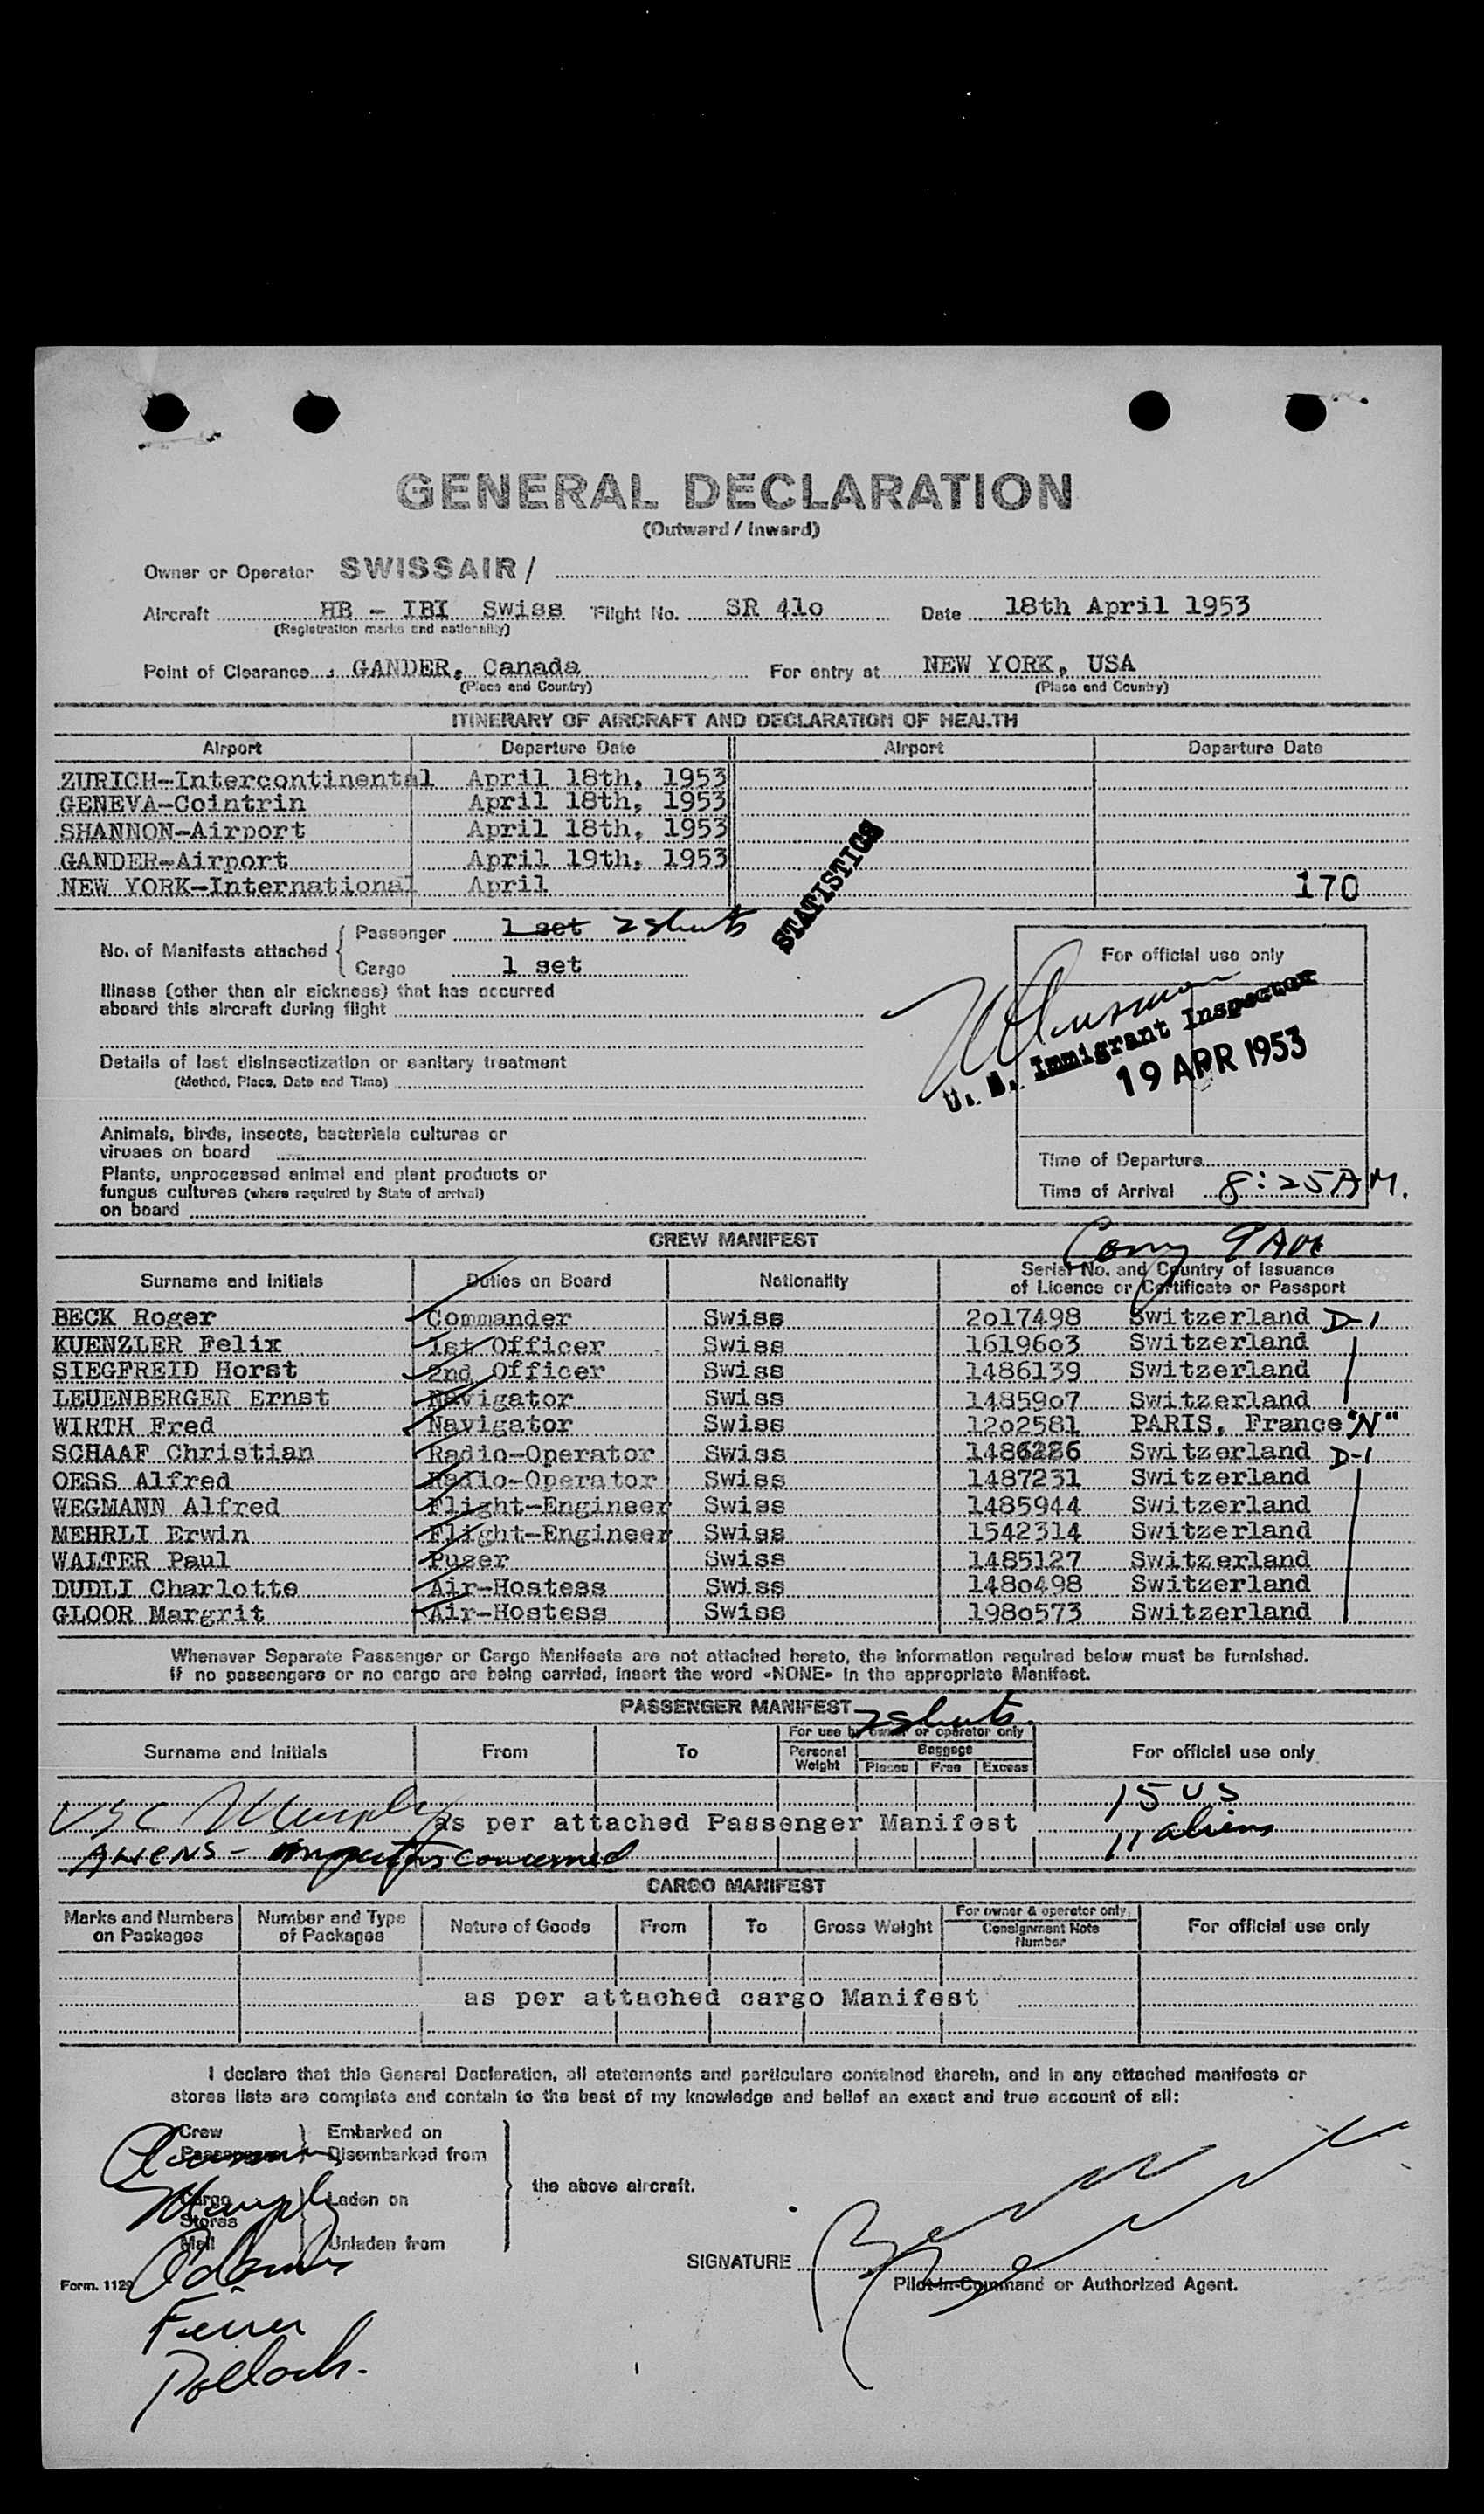 GENERAL DECLARATION
(Outward / Inward)
Owner or Operator SWISSAIR /
Aircraft HB - IBI Swiss Flight No. SR 41o Date 18th April 1953
(Registration marks and nationality)
Point of Clearance : GANDER, Canada For entry at NEW YORK, USA
(Place and Country) (Place and Country)
ITINERARY OF AIRCRAFT AND DECLARATION OF HEALTH
Airport Departure Date Airport Departure Date
ZURICH-Intercontinental April 18th, 1953
GENEVA-Cointrin April 18th, 1953
SHANNON-Airport April 18th, 1953
GANDER-Airport April 19th, 1953
NEW YORK-International April 170
STATISTICS
No. of Manifests attached Passenger 1 set 2 sheets
Cargo 1 set
For official use only
Illness (other than air sickness) that has occurred
aboard this aircraft during flight
U. S. Immigrant Inspector
19 APR 1953
Details of last disinsectization or sanitary treatment
(Method, Place, Date and Time)
Animals, birds, insects, bacteriale cultures or
viruses on board
Plants, unprocessed animal and plant products or
fungus cultures (where required by State of arrival)
on board
Time of Departure
Time of Arrival 8:25 AM.
CREW MANIFEST 9 AM
Surname and Initials Duties on Board Nationality Serial No. and Country of Issuance
of Licence or Certificate or Passport
BECK Roger Commander Swiss 2o17498 Switzerland D-1
KUENZLER Felix 1st Officer Swiss 16196o3 Switzerland
SIEGFREID Horst 2nd Officer Swiss 1486139 Switzerland
LEUENBERGER Ernst Navigator Swiss 14859o7 Switzerland
WIRTH Fred Navigator Swiss 12o2581 PARIS, France "N"
SCHAAF Christian Radio-Operator Swiss 1486226 Switzerland D-1
OESS Alfred Radio-Operator Swiss 1487231 Switzerland
WEGMANN Alfred Flight-Engineer Swiss 1485944 Switzerland
MEHRLI Erwin Flight-Engineer Swiss 1542314 Switzerland
WALTER Paul Puser Swiss 1485127 Switzerland
DUDLI Charlotte Air-Hostess Swiss 148o498 Switzerland
GLOOR Margrit Air-Hostess Swiss 198o573 Switzerland
Whenever Separate Passenger or Cargo Manifests are not attached hereto, the information required below must be furnished.
If no passengers or no cargo are being carried, insert the word «NONE» in the appropriate Manifest.
PASSENGER MANIFEST 2 sheets
Surname and Initials From To For use by owner or operator only For official use only
Personal Weight Baggage
Pieces Free Excess
15 US
USC Murphy as per attached Passenger Manifest 11 aliens
ALIENS - inspectors concerned
CARGO MANIFEST
Marks and Numbers on Packages Number and Type of Packages Nature of Goods From To Gross Weight For owner & operator only Consignment Note Number For official use only
as per attached cargo Manifest
I declare that this General Declaration, all statements and particulars contained therein, and in any attached manifests or
stores lists are complete and contain to the best of my knowledge and belief an exact and true account of all:
Crew Embarked on
Passengers Disembarked from
the above aircraft.
Cargo Laden on
Murphy
Stores
Mail Unladen from
Adams
SIGNATURE
Form. 1129 Pilot-in-Command or Authorized Agent.
Ferrer
Pollock.